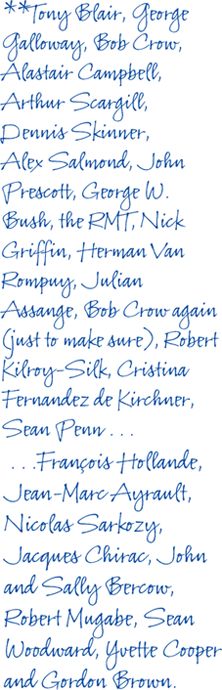 **Tony Blair, George
Galloway, Bob Crow,
Alastair Campbell,
Arthur Scargill,
Dennis Skinner,
Alex Salmond, John
Prescott, George W.
Bush, the RMT, Nick
Griffin, Herman Van
Rompuy, Julian
Assange, Bob Crow again
(just to make sure), Robert
Kilroy-Silk, Cristina
Fernandez de Kirchner,
Sean Penn . . .
. . .François Hollande,
Jean-Marc Ayrault,
Nicolas Sarkozy,
Jacques Chirac, John
and Sally Bercow,
Robert Mugabe, Sean
Woodward, Yvette Cooper
and Gordon Brown.